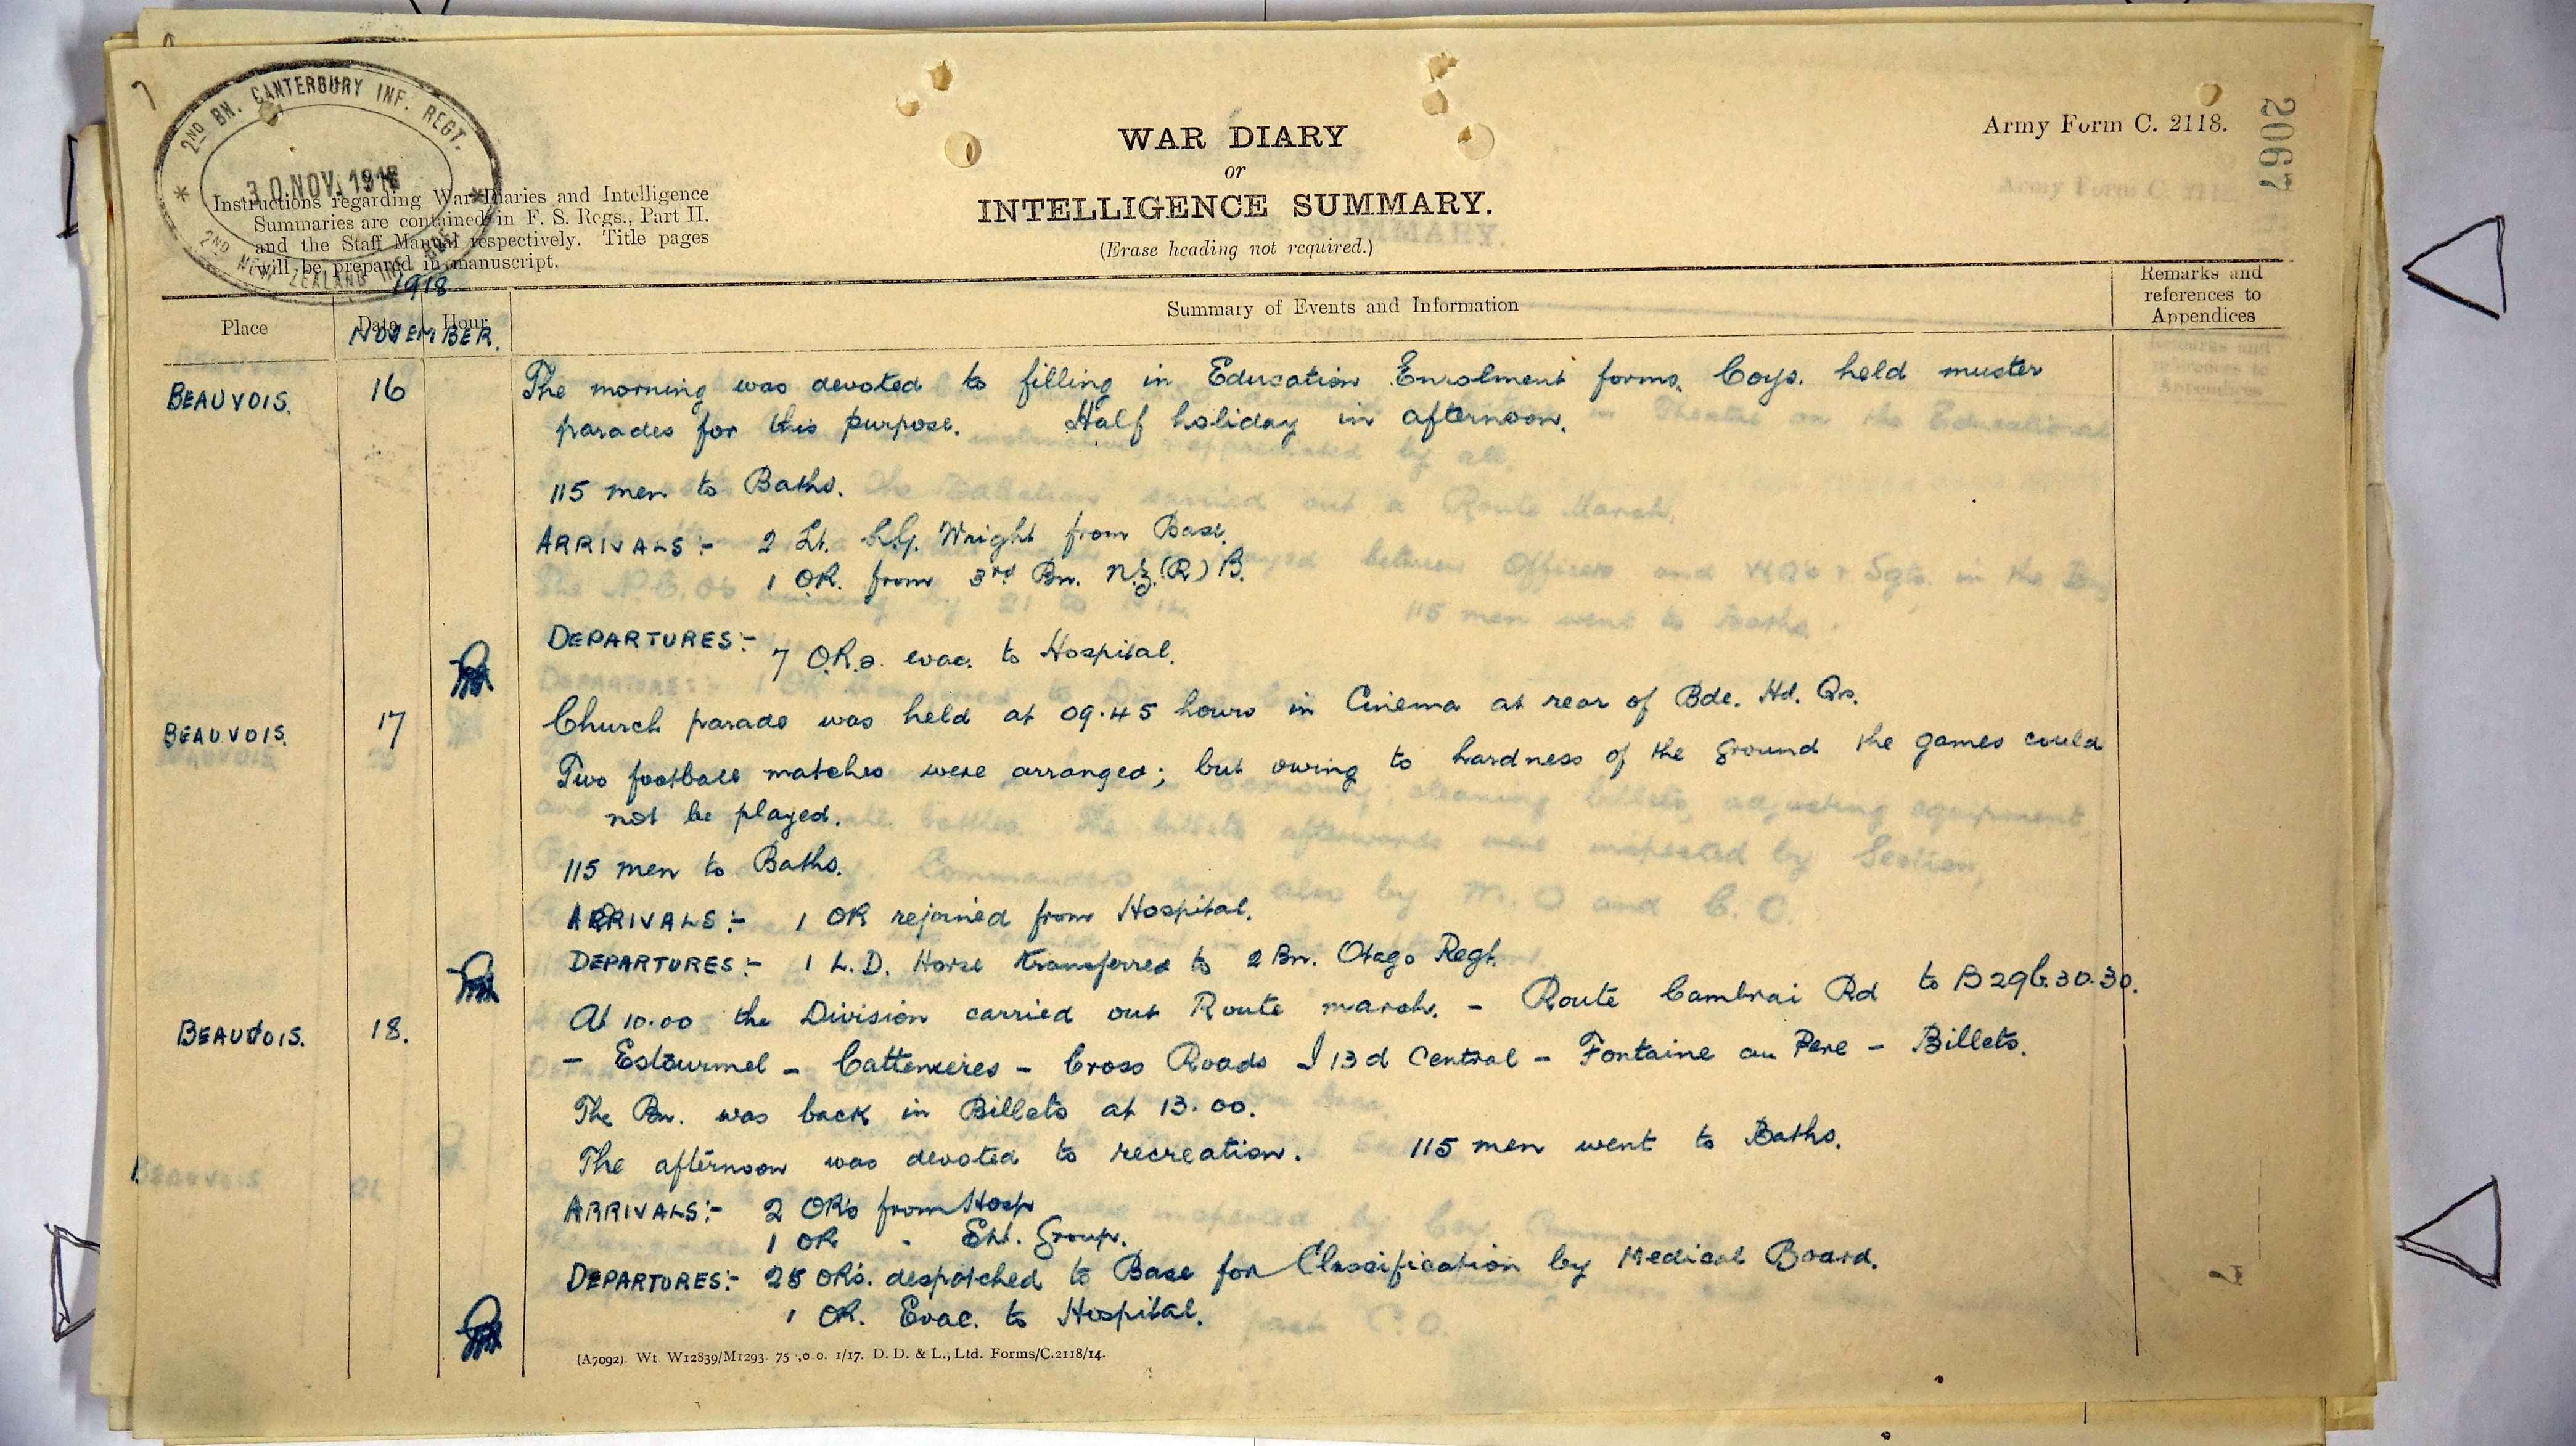 2ND BN. CANTERBURY INF. REGT.
30 NOV. 1918
2ND NEW ZEALAND INF.
Army Form C. 2118.
2067
WAR DIARY
or
INTELLIGENCE SUMMARY.
(Erase heading not required.)
Instructions regarding War Diaries and Intelligence
Summaries are contained in F. S. Regs., Part II.
and the Staff Manual respectively. Title pages
will be prepared in manuscript.
1918
Place Date Hour Summary of Events and Information Remarks and references to Appendices
NOVEMBER.
BEAUVOIS. 16 The morning was devoted to filling in Education Enrolment forms. Coys. held muster
parades for this purpose. Half holiday in afternoon.
115 men to Baths.
ARRIVALS:- 2 Lt. Wright from Base.
1 OR. from 3rd Bn. N.Z.(R)B.
DEPARTURES:- 7 O.R.s. evac. to Hospital.
BEAUVOIS. 17 Church parade was held at 09.45 hours in Cinema at rear of Bde. Hd. Qrs.
Two football matches were arranged; but owing to hardness of the ground the games could
not be played.
115 men to Baths.
ARRIVALS:- 1 OR rejoined from Hospital.
DEPARTURES:- 1 L.D. Horse transferred to 2 Bn. Otago Regt.
BEAUVOIS. 18. At 10.00 the Division carried out Route march. - Route Cambrai Rd to B29b.30.30.
- Estourmel - Cattenieres - Cross Roads I 13 d Central - Fontaine au Pere - Billets.
The Bn. was back in Billets at 13.00.
The afternoon was devoted to recreation. 115 men went to Baths.
ARRIVALS:- 2 OR's from Hosp
1 OR " Ent. Group.
DEPARTURES:- 25 OR's. despatched to Base for Classification by Medical Board.
1 OR. Evac. to Hospital.
(A7092). Wt W12839/M1293. 75 ,0 0. 1/17. D. D. & L., Ltd. Forms/C.2118/14.